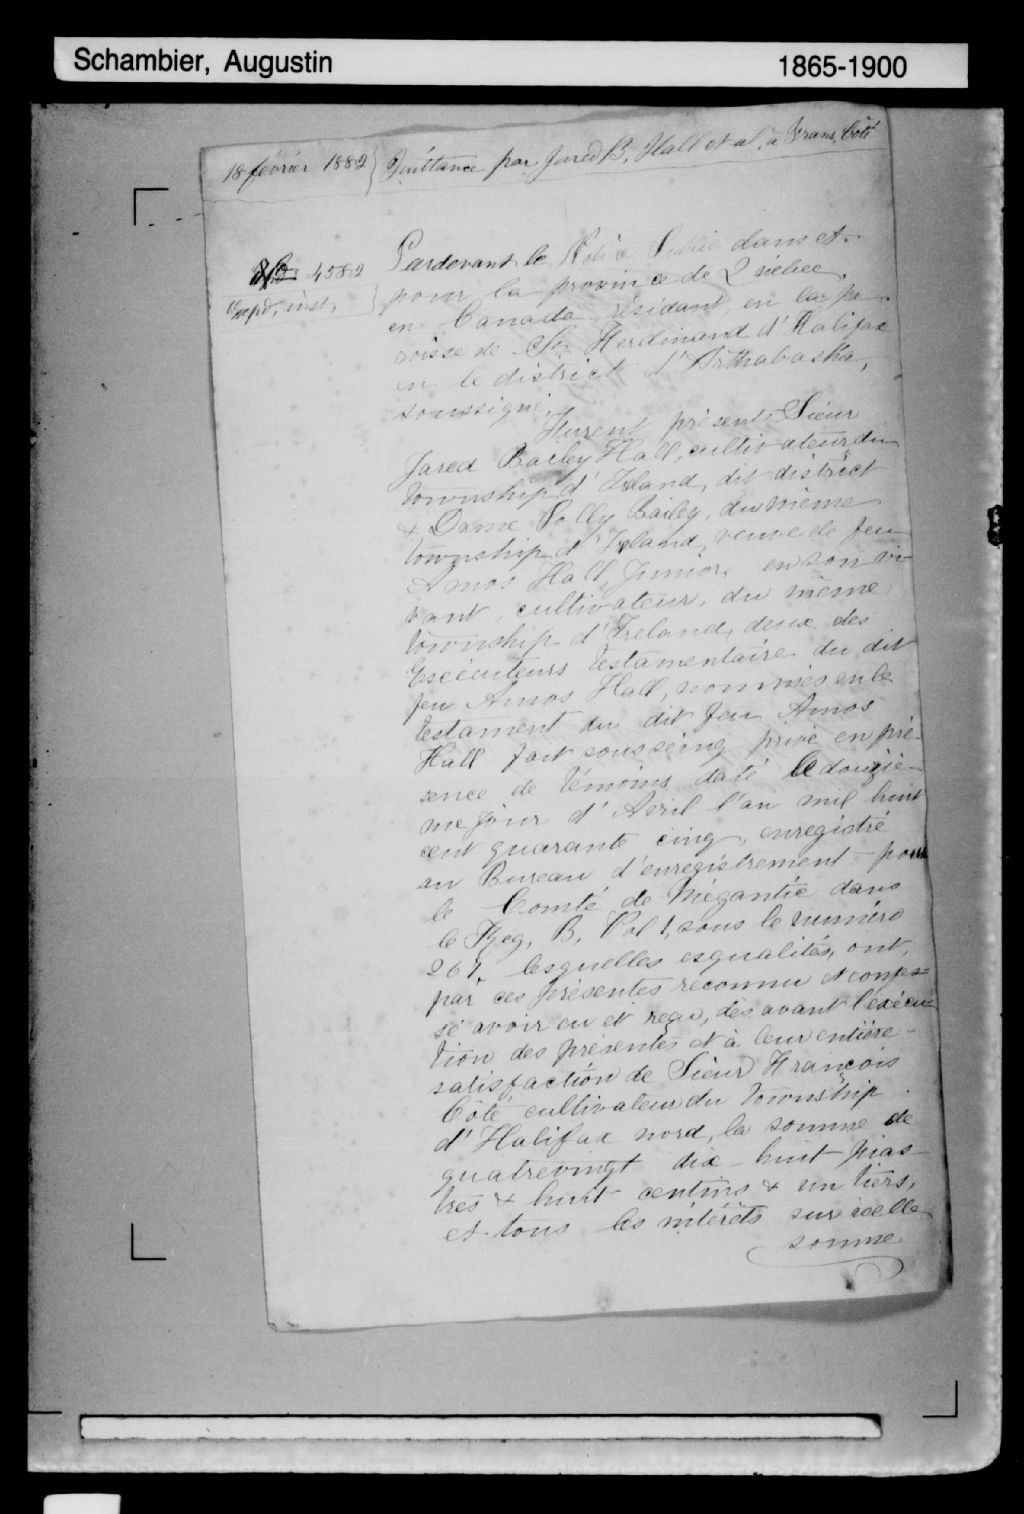 Schambier, Augustin
1865-1900
18 février 1882 } Quittance par Jared B. Hall et al. à Frans. Côté
No 4582
Expd, inst,
Pardevant le Notre Public dans et
pour la province de Québec,
en Canada, résidant en la pa-
roisse de St Ferdinand d'Halifax
en le district d'Arthabaska,
soussigné,
Furent présents Sieur
Jared Bailey Hall, cultivateur du
township d'Irland, dit district
& Dame Polly Bailey, du même
township d'Ireland, veuve de feu
Amos Hall, Junior, en son vi-
vant, cultivateur, du même
township d'Ireland, deux des
Exécuteurs testamentaire du dit
feu Amos Hall, nommés en le
testament du dit feu Amos
Hall fait sous seing privé en pré-
sence de témoins daté le douziè-
me jour d'Avril l'an mil huit
cent quarante cinq, enregistré
au Bureau d'enregistrement pour
le Comté de Mégantic dans
le Reg, B, Vol 1, sous le numéro
267, lesquelles esqualités, ont,
par ces présentes reconnu et confes-
sé avoir eu et reçu, dès avant l'exécu-
tion des présentes et à leur entière
satisfaction de Sieur François
Côté cultivateur du township
d'Halifax nord, la somme de
quatrevingt dix-huit pias-
tres & huit centins & un tiers,
et tous les intérêts sur icelle
somme